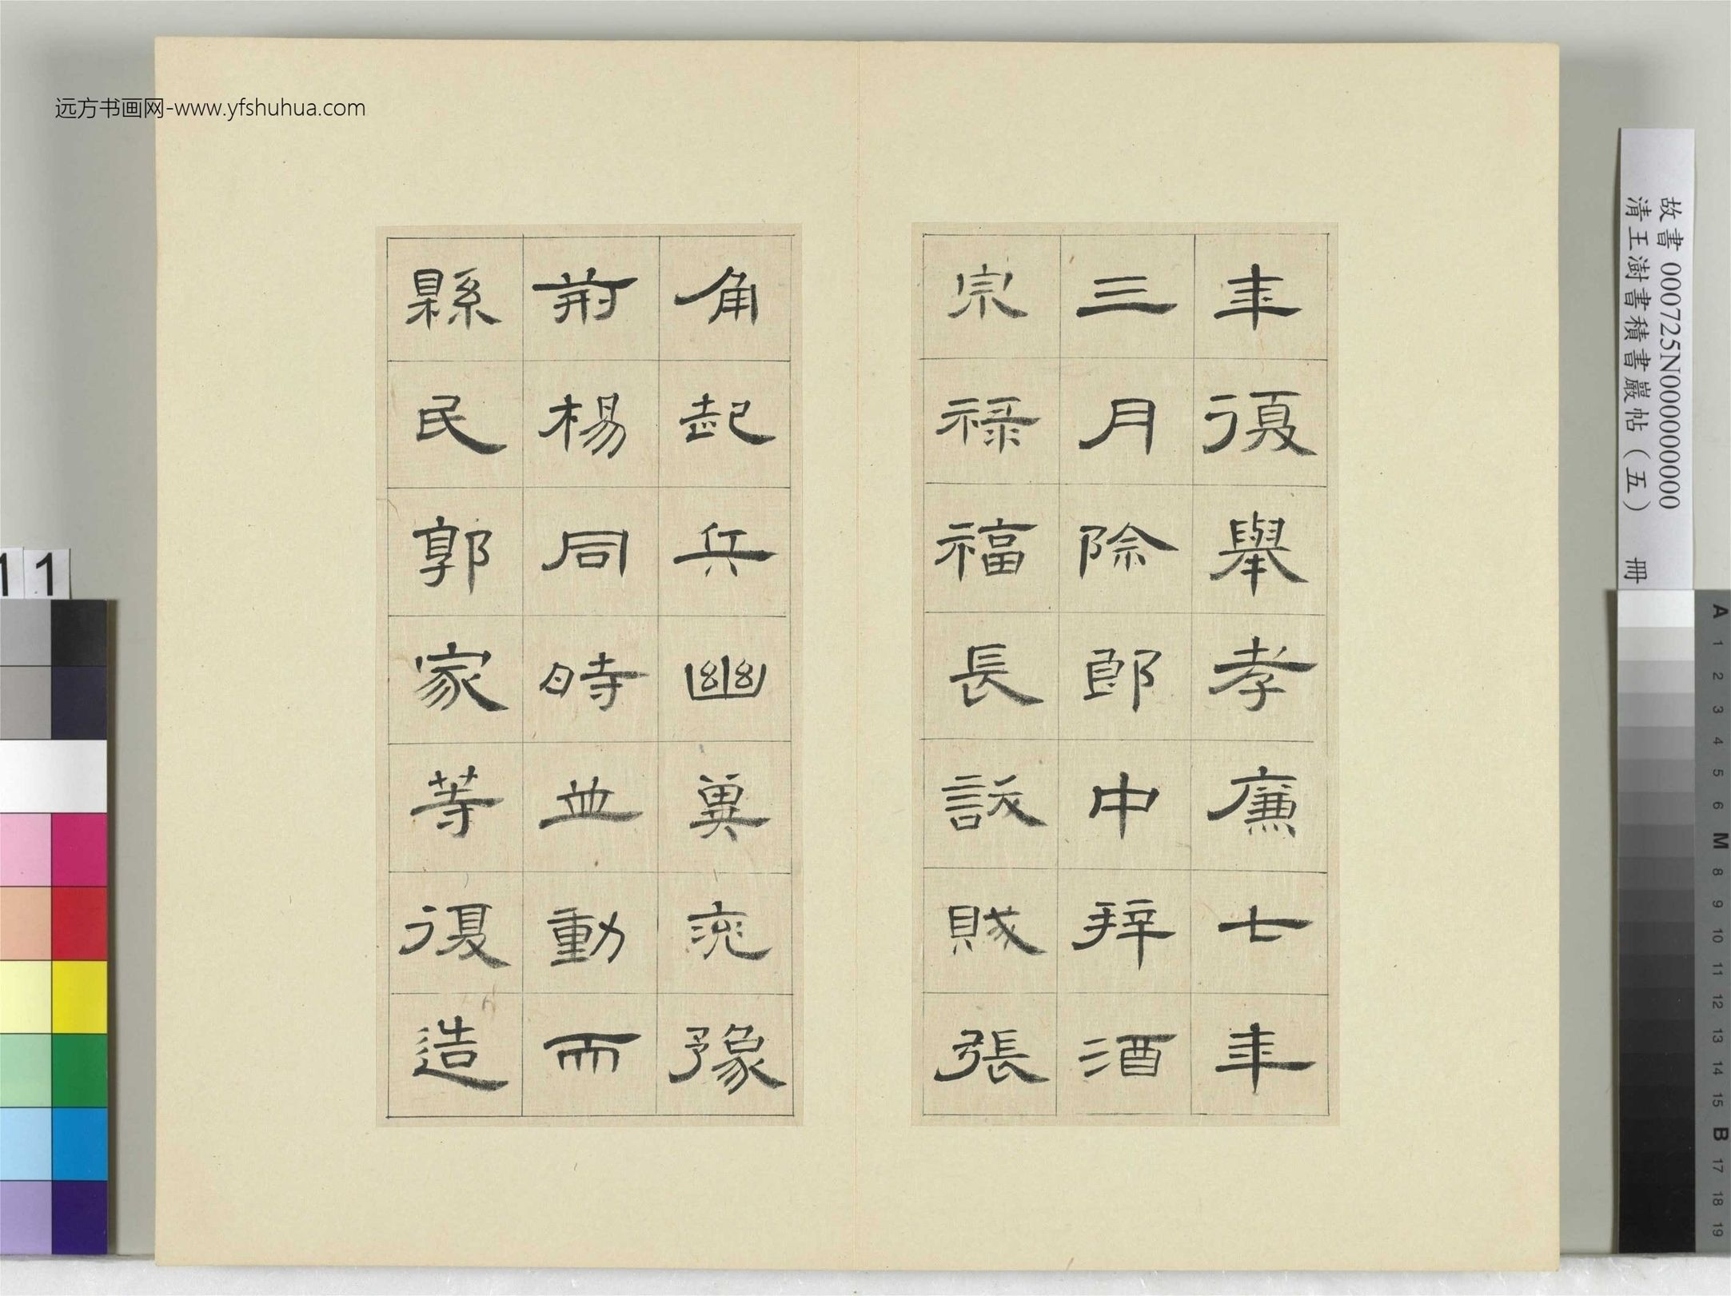 远方书画网-www.yfshuhua.com
年復舉孝廉七年
三月除郎中拜酒
泉祿福長訞賊張
角起兵幽冀兖豫
荊楊同時並動而
縣民郭家等復造
故書 000725N000000000
清王澍書積書巖帖（五） 冊
11
A
1
2
3
4
5
6
M
8
9
10
11
12
13
14
15
B
17
18
19